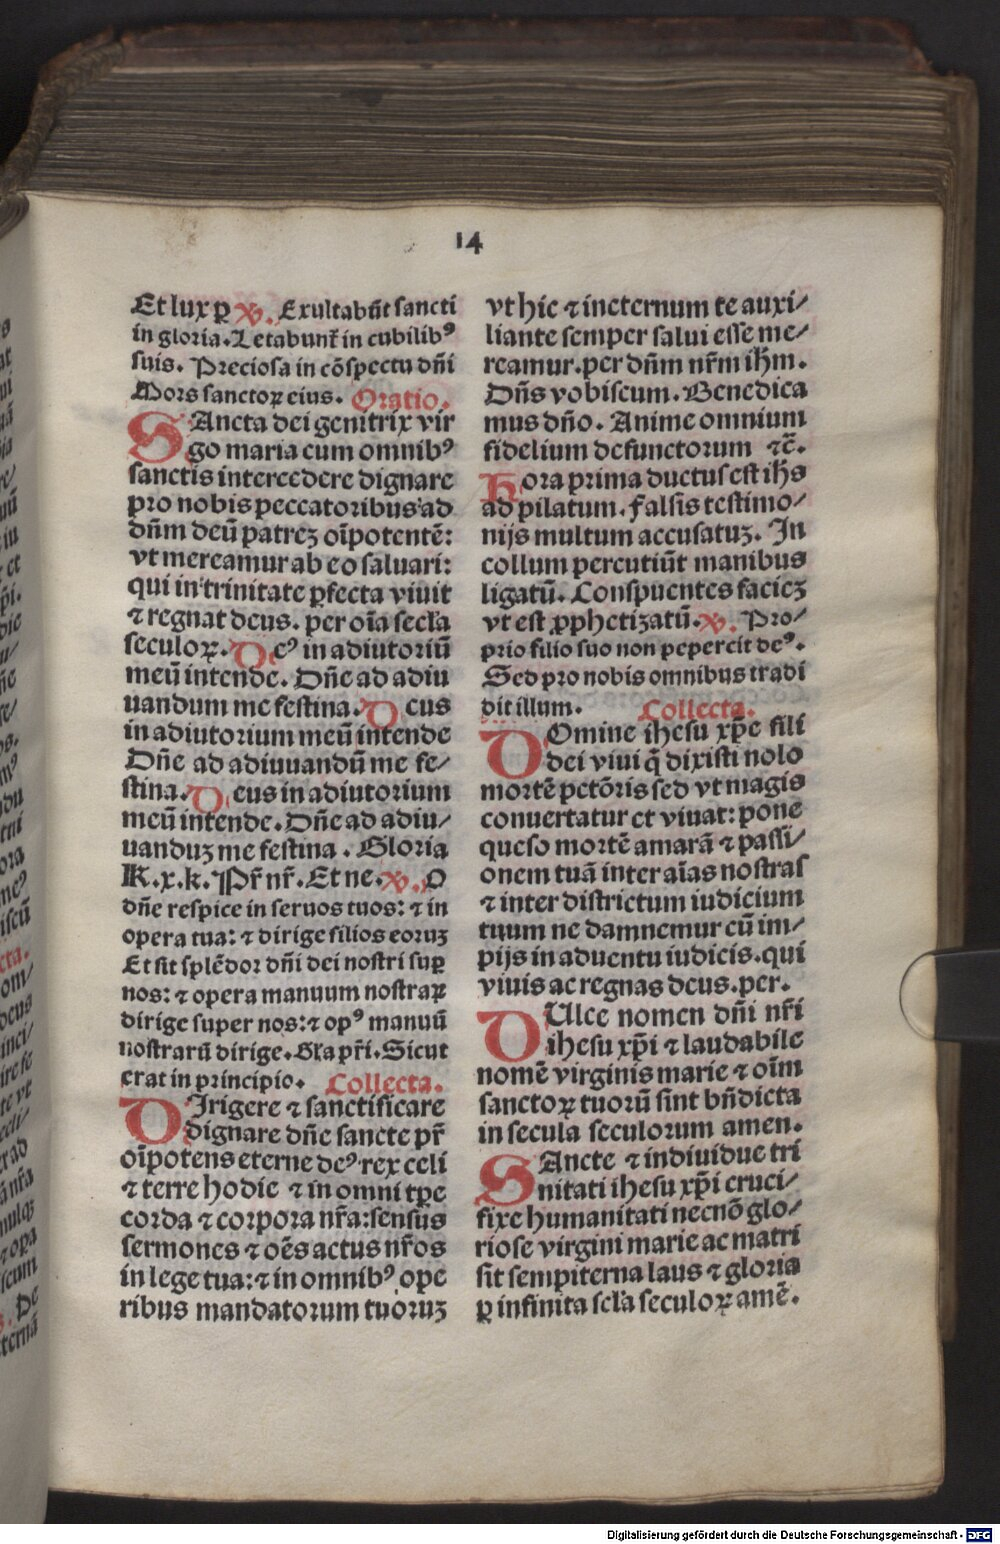 14
Et lux ꝑ ꝟ. Exultabūt sancti
in gloria. Letabunt᷑ in cubilib⁹
suis. Preciosa in cōspectu dn̄i
Mors sanctoꝝ eius. Oratio.
SAncta dei genitrix vir
go maria cum omnib⁹
sanctis intercedere dignare
pro nobis peccatoribus ad
dn̄m deū patreꝫ oīpotentē:
vt mereamur ab eo saluari:
qui in trinitate ꝑfecta viuit
⁊ regnat deus. per oīa secl̄a
seculoꝝ. De⁹ in adiutoriū
meū intende. Dn̄e ad adiu
uandum me festina. Deus
in adiutorium meū intende
Dn̄e ad adiuuandū me fe⸗
stina. Deus in adiutorium
meū intende. Dn̄e ad adiu/
uanduꝫ me festina. Gloria
K. x. k. Pr̄ nr̄. Et ne. ꝟ. O
dn̄e respice in seruos tuos: ⁊ in
opera tua: ⁊ dirige filios eoruꝫ
Et sit splēdor dn̄i dei nostri suꝑ
nos: ⁊ opera manuum nostraꝝ
dirige super nos: ⁊ op⁹ manuū
nostrarū dirige. Gl̄a pr̄i. Sicut
erat in principio. Collecta.
DIrigere ⁊ sanctificare
dignare dn̄e sancte pr̄
oīpotens eterne de⁹ rex celi
⁊ terre hodie ⁊ in omni tꝑe
corda ⁊ corpora nr̄a: sensus
sermones ⁊ oēs actus nr̄os
in lege tua: ⁊ in omnib⁹ ope
ribus mandatorum tuoruꝫ
vt hic ⁊ in eternum te auxi/
liante semper salui esse me/
reamur. per dn̄m nr̄m ih̄m.
Dn̄s vobiscum. Benedica
mus dn̄o. Anime omnium
fidelium defunctorum ⁊c̄.
Hora prima ductus est ih̄s
ad pilatum. falsis testimo/
nijs multum accusatuꝫ. In
collum percutiūt manibus
ligatū. Conspuentes facieꝫ
vt est ꝓphetizatū. ꝟ. Pro/
prio filio suo non pepercit de⁹.
Sed pro nobis omnibus tradi
dit illum. Collecta.
DOmine ihesu xp̄e fili
dei viui q̄ dixisti nolo
mortē pctōris sed vt magis
conuertatur et viuat: pone
queso mortē amarā ⁊ passi/
onem tuā inter aīas nostras
⁊ inter districtum iudicium
tuum ne damnemur cū im/
pijs in aduentu iudicis. qui
viuis ac regnas deus. per.
DUlce nomen dn̄i nr̄i
ihesu xp̄i ⁊ laudabile
nomē virginis marie ⁊ oīm
sanctoꝝ tuorū sint bn̄dicta
in secula seculorum amen.
SAncte ⁊ indiuidue tri
nitati ihesu xp̄i cruci/
fixe humanitati necnō glo/
riose virgini marie ac matri
sit sempiterna laus ⁊ gloria
ꝑ infinita scl̄a seculoꝝ amē.
Digitalisierung gefördert durch die Deutsche Forschungsgemeinschaft - DFG